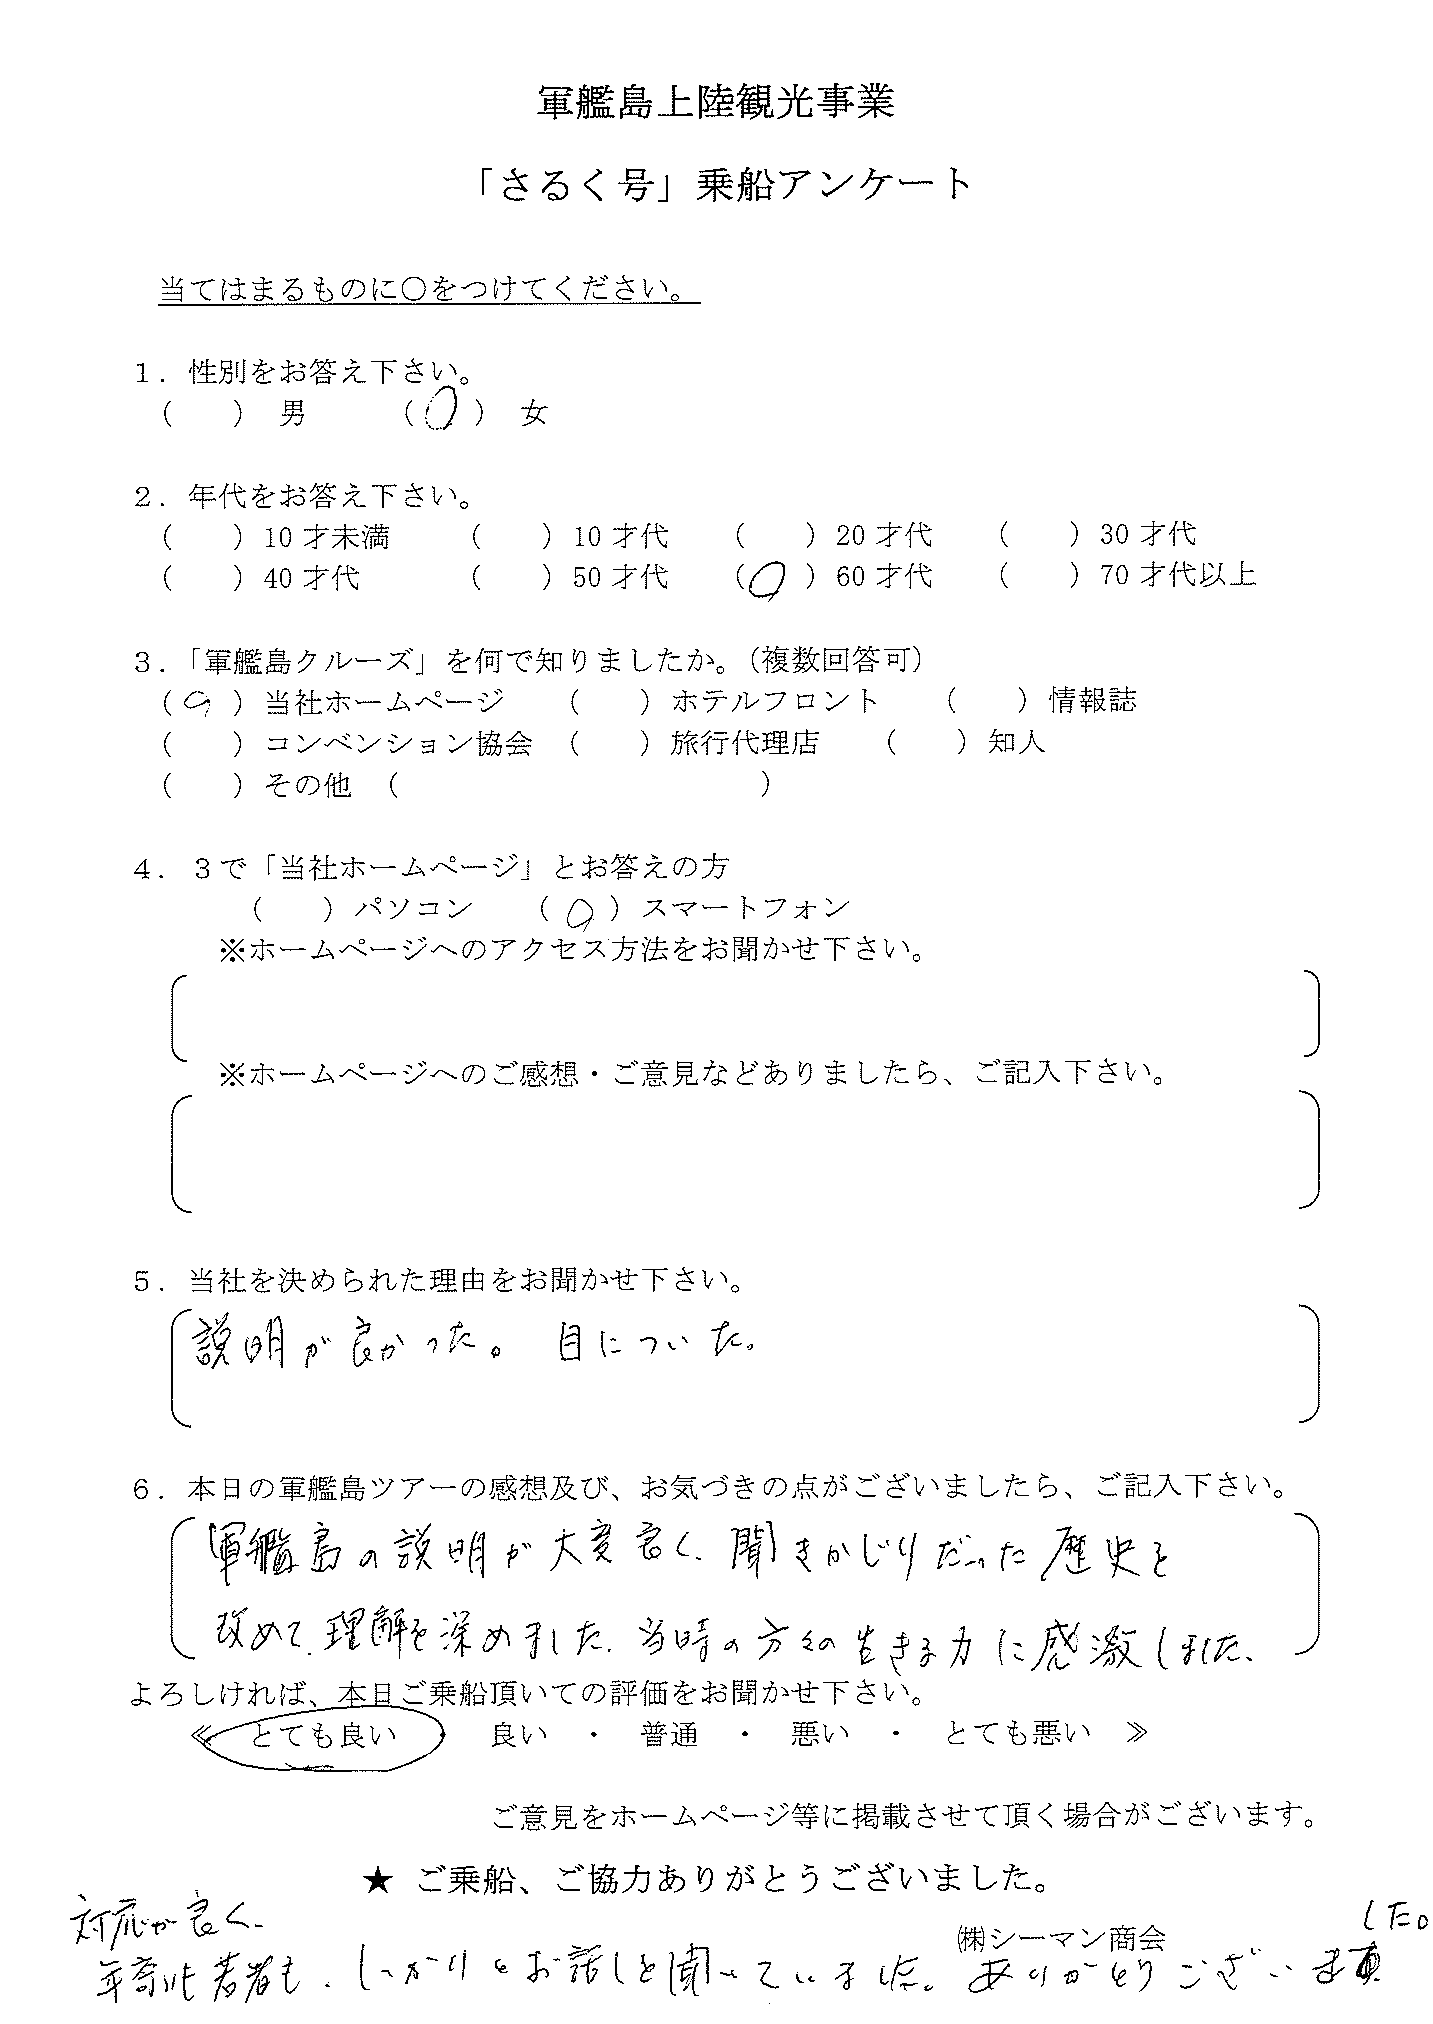 軍艦島上陸観光事業
「さるく号」乗船アンケート
当てはまるものに○をつけてください。
1．性別をお答え下さい。
（　　）男　　（○）女
2．年代をお答え下さい。
（　　）10才未満　（　　）10才代　（　　）20才代　（　　）30才代
（　　）40才代　（　　）50才代　（○）60才代　（　　）70才代以上
3．「軍艦島クルーズ」を何で知りましたか。（複数回答可）
（○）当社ホームページ　（　　）ホテルフロント　（　　）情報誌
（　　）コンベンション協会　（　　）旅行代理店　（　　）知人
（　　）その他　（　　　　　　　　　　）
4．3で「当社ホームページ」とお答えの方
（　　）パソコン　（○）スマートフォン
※ホームページへのアクセス方法をお聞かせ下さい。
※ホームページへのご感想・ご意見などありましたら、ご記入下さい。
5．当社を決められた理由をお聞かせ下さい。
説明が良かった。目についた。
6．本日の軍艦島ツアーの感想及び、お気づきの点がございましたら、ご記入下さい。
軍艦島の説明が大変良く、聞きかじりだった歴史を
改めて、理解を深めました、当時の方々の生きる力に感激しました、
よろしければ、本日ご乗船頂いての評価をお聞かせ下さい。
≪　とても良い　・　良い　・　普通　・　悪い　・　とても悪い　≫
ご意見をホームページ等に掲載させて頂く場合がございます。
★ ご乗船、ご協力ありがとうございました。
㈱シーマン商会
対応が良く、
若者も、しっかりとお話しを聞いていました。ありがとうございました。